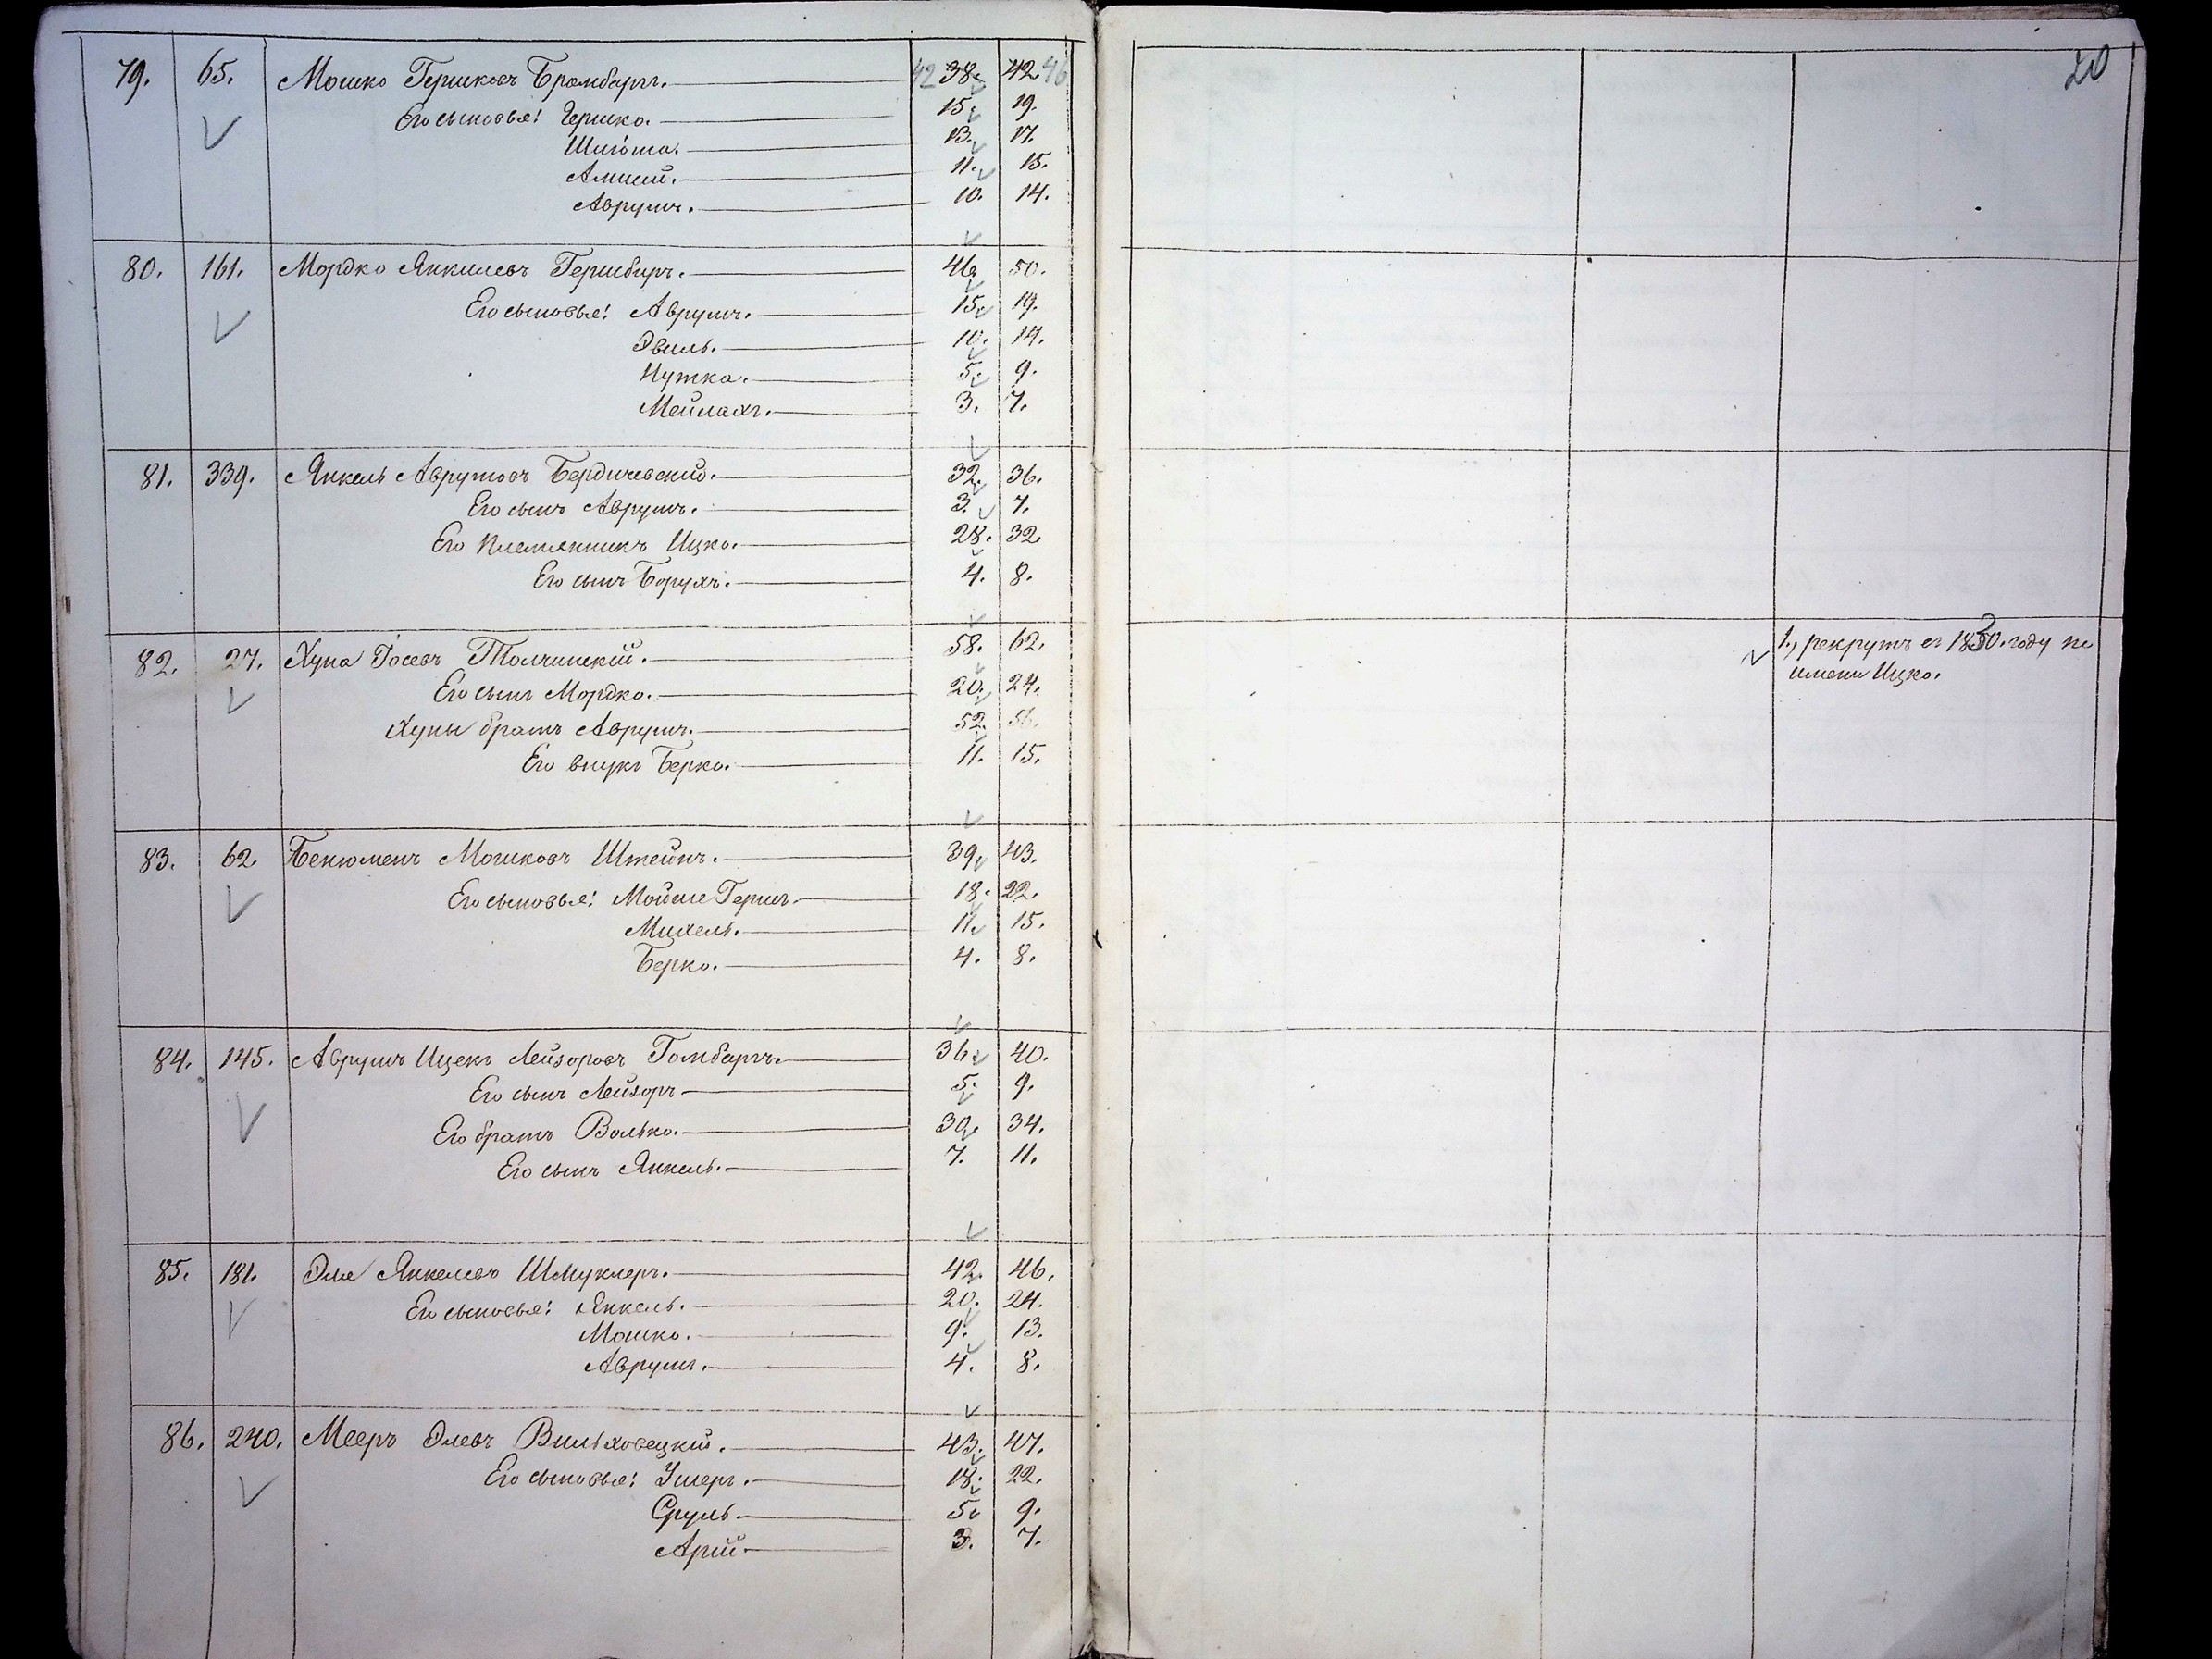 20
79. 65. Мошко Гершковъ Бромбергъ. 42 38. 42. 46
Его сыновья: Гершко. 15. 19.
13. 17.
11. 15.
Аврумъ. 10. 14.
80. 161. Мордко Янкилевъ 46. 50.
Его сыновья: Аврумъ. 15. 19.
Эвиль. 10. 14.
Нутка. 5. 9.
Мейлахъ. 3. 7.
81. 339. Янкель Аврумовъ Бердичевский. 32. 36.
Его сынъ Аврумъ. 3. 7.
Его племянникъ Ицко. 28. 32
Его сынъ Борухъ. 4. 8.
82. 27. Хуна Іосевъ Толчинскій. 58. 62. 1, рекрутъ въ 1850. году по
имени Ицко.
Его сынъ Мордко. 20. 24.
Хуны братъ Аврумъ. 52. 56.
Его внукъ Берко. 11. 15.
83. 62. Бенюменъ Мошковъ Штейнъ. 39. 43.
Его сыновья: Мойше Гершъ 18. 22.
Михель. 11. 15.
Берко. 4. 8.
84. 145. Аврумъ Ицекъ Лейзоровъ Гомбергъ. 36. 40.
Его сынъ Лейзоръ 5. 9.
Его братъ Волько. 30. 34.
Его сынъ Янкель. 7. 11.
85. 181. Эле Янкелевъ Шмуклеръ. 42. 46.
Его сыновья: Янкель. 20. 24.
Мошко. 9. 13.
Аврумъ. 4. 8.
86. 240. Мееръ Элевъ Вильховецкій. 43. 47.
Его сыновья: Ушеръ. 18. 22.
Сруль 5. 9.
Арій 3. 7.